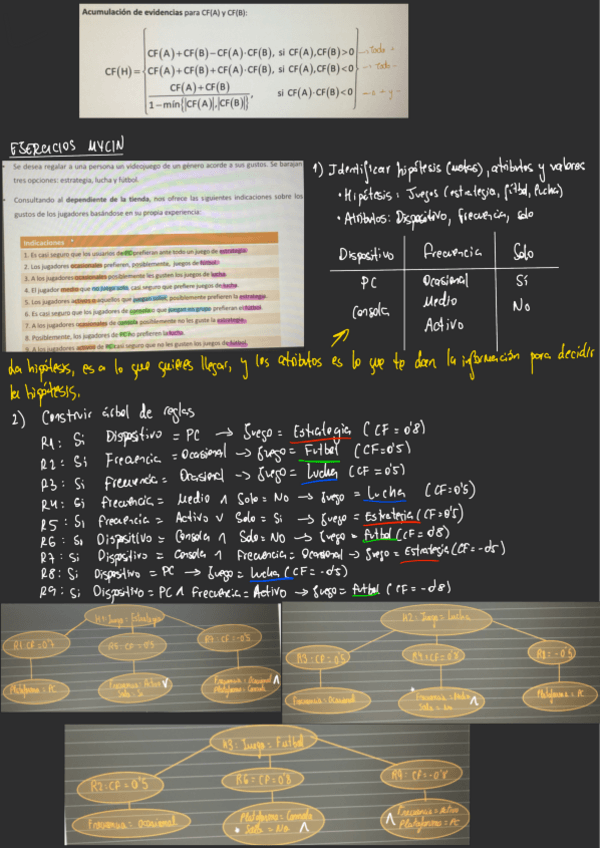 Acumulación de evidencias para CF(A) y CF(B):
CF(A)+CF(B)−CF(A)·CF(B), si CF(A),CF(B)>0 → todo +
CF(H)= CF(A)+CF(B)+CF(A)·CF(B), si CF(A),CF(B)<0 → todo -
CF(A)+CF(B)
1−min{|CF(A)|,|CF(B)|}, si CF(A)·CF(B)<0
EJERCICIOS MYCIN
Se desea regalar a una persona un videojuego de un género acorde a sus gustos. Se barajan
tres opciones: estrategia, lucha y fútbol.
Consultando al dependiente de la tienda, nos ofrece las siguientes indicaciones sobre los
gustos de los jugadores basándose en su propia experiencia:
Indicaciones
1. Es casi seguro que los usuarios de PC prefieran ante todo un juego de estrategia.
2. Los jugadores ocasionales prefieren, posiblemente, juegos de fútbol.
3. A los jugadores ocasionales posiblemente les gusten los juegos de lucha.
4. El jugador medio que no juega solo, casi seguro que prefiere juegos de lucha.
5. Los jugadores activos o aquellos que juegan solos, posiblemente prefieren la estrategia.
6. Es casi seguro que los jugadores de consola que juegan en grupo prefieran el fútbol.
7. A los jugadores ocasionales de consola posiblemente no les guste la estrategia.
8. Posiblemente, los jugadores de PC no prefieren la lucha.
9. A los jugadores activos de PC casi seguro que no les gusten los juegos de fútbol.
1) Identificar hipótesis (metas), atributos y valores
• Hipótesis: Juegos (estrategia, fútbol, lucha)
• Atributos: Dispositivo, frecuencia, solo
Dispositivo Frecuencia Solo
PC Ocasional Sí
Consola Medio No
Activo
La hipótesis, es a lo que quieres llegar, y los atributos es lo que te dan la información para decidir
la hipótesis.
2) Construir árbol de reglas
R1: Si Dispositivo = PC → Juego = Estrategia (CF = 0'8)
R2: Si Frecuencia = Ocasional → Juego = Futbol (CF = 0'5)
R3: Si Frecuencia = Ocasional → Juego = Lucha (CF = 0'5)
R4: Si Frecuencia = Medio ∧ Solo = No → Juego = Lucha (CF = 0'5)
R5: Si Frecuencia = Activo ∨ Solo = Si → Juego = Estrategia (CF = 0'5)
R6: Si Dispositivo = Consola ∧ Solo = No → Juego = Futbol (CF = 0'8)
R7: Si Dispositivo = Consola ∧ Frecuencia = Ocasional → Juego = Estrategia (CF = -0'5)
R8: Si Dispositivo = PC → Juego = Lucha (CF = -0'5)
R9: Si Dispositivo = PC ∧ Frecuencia = Activo → Juego = Futbol (CF = -0'8)
H1: Juego = Estrategia
R5: CF = 0'5
R7: CF = -0'5
Plataforma = PC
Frecuencia = Activo ∨
Solo = Si
Frecuencia = Ocasional ∧
Plataforma = Consola
H2: Juego = Lucha
R3: CF = 0'5
R8: -0'5
Frecuencia = Ocasional
Plataforma = PC
H3: Juego = Futbol
R2: CF = 0'5
R6 = CF = 0'8
Frecuencia = Ocasional
Plataforma = Consola
Solo = No ∧
Frecuencia = Activo
Plataforma = PC